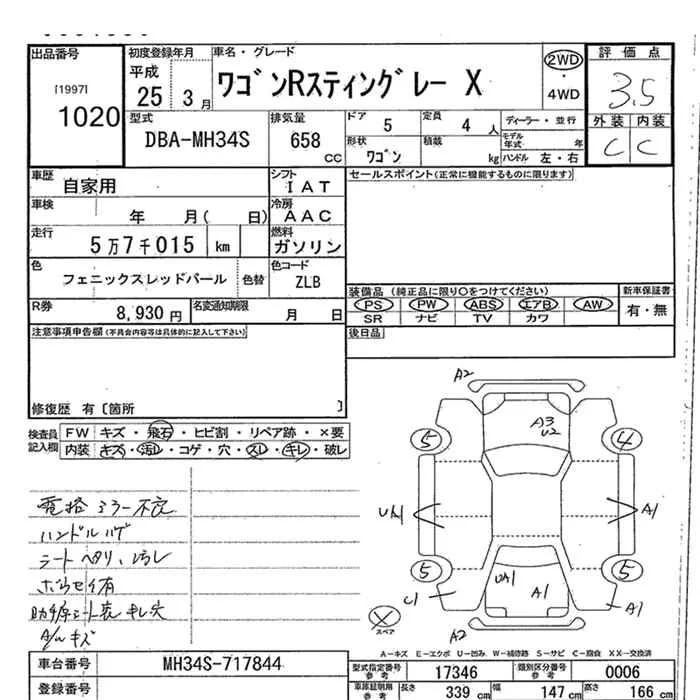 出品番号
[1997]
1020
初度登録年月
平成
25 3 月
車名・グレード
ワゴンRスティングレー X
2WD
・
4WD
評価点
3.5
外装 内装
C C
型式
DBA-MH34S
排気量
658
CC
ドア
5
定員
4 人
形状
ワゴン
積載
kg
ディーラー・並行
モデル年式 年
ハンドル 左・右
車歴
自家用
シフト
IAT
セールスポイント(正常に機能するものに限ります)
車検
年 月( 日)
冷房
AAC
走行
5万7千015 km
燃料
ガソリン
色
フェニックスレッドパール
色替
色コード
ZLB
装備品 (純正品に限り○をつけてください)
新車保証書
PS PW ABS エアB AW
有・無
SR ナビ TV カワ
R券
8,930 円
名変通知期限
月 日
後日品
注意事項申告欄(不具合内容等は具体的に記入して下さい)
修復歴 有〔箇所 〕
検査員記入欄
FW キズ・飛石・ヒビ割・リペア跡・×要
内装 キズ・汚レ・コゲ・穴・スレ・キレ・破レ
電格ミラー不良
ハンドルハゲ
シートヘタリ、汚レ
A/Wキズ
A2
A3
U2
5
4
A1
5
5
UA1
A1
U1
A1
A2
スペア
A-キズ E-エクボ U-凹み W-補修跡 S-サビ C-腐食 XX-交換済
車台番号
MH34S-717844
登録番号
型式指定番号
参考
17346
類別区分番号
参考
0006
車庫証明用
参考
長さ
339 cm
幅
147 cm
高さ
166 cm